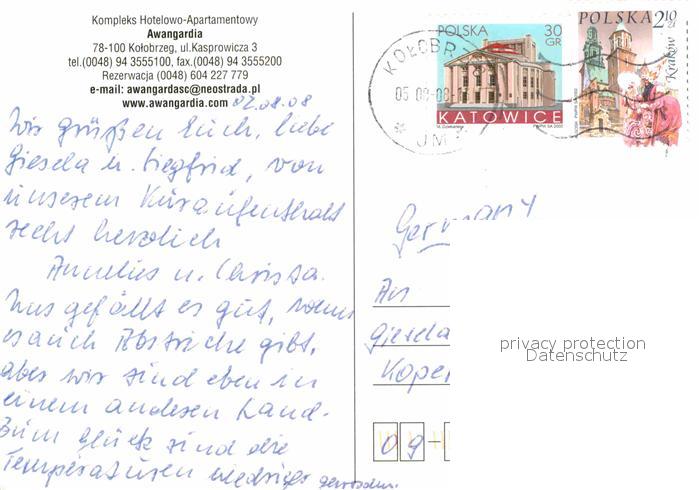 Kompleks Hotelowo-Apartamentowy
Awangardia
78-100 Kołobrzeg, ul.Kasprowicza 3
tel.(0048) 94 3555100, fax.(0048) 94 3555200
Rezerwacja (0048) 604 227 779
e-mail: awangardasc@neostrada.pl
www.awangardia.com
02.08.08
Wir grüßen Euch, liebe
Giesela u. Siegfrid, von
unserem Kuraufenthalt
recht herzlich
Annelies u. Christa.
Uns gefällt es gut, wenn
es auch Abstriche gibt,
aber wir sind eben in
einem anderen Land.
Zum Glück sind die
Temperaturen niedriger geworden.
POLSKA 30 GR
KATOWICE
POLSKA 2,10 zł
Kraków
KOŁOBR
05 08-08
* UM
Germany
An
Giesela
Koper
09-
privacy protection
Datenschutz